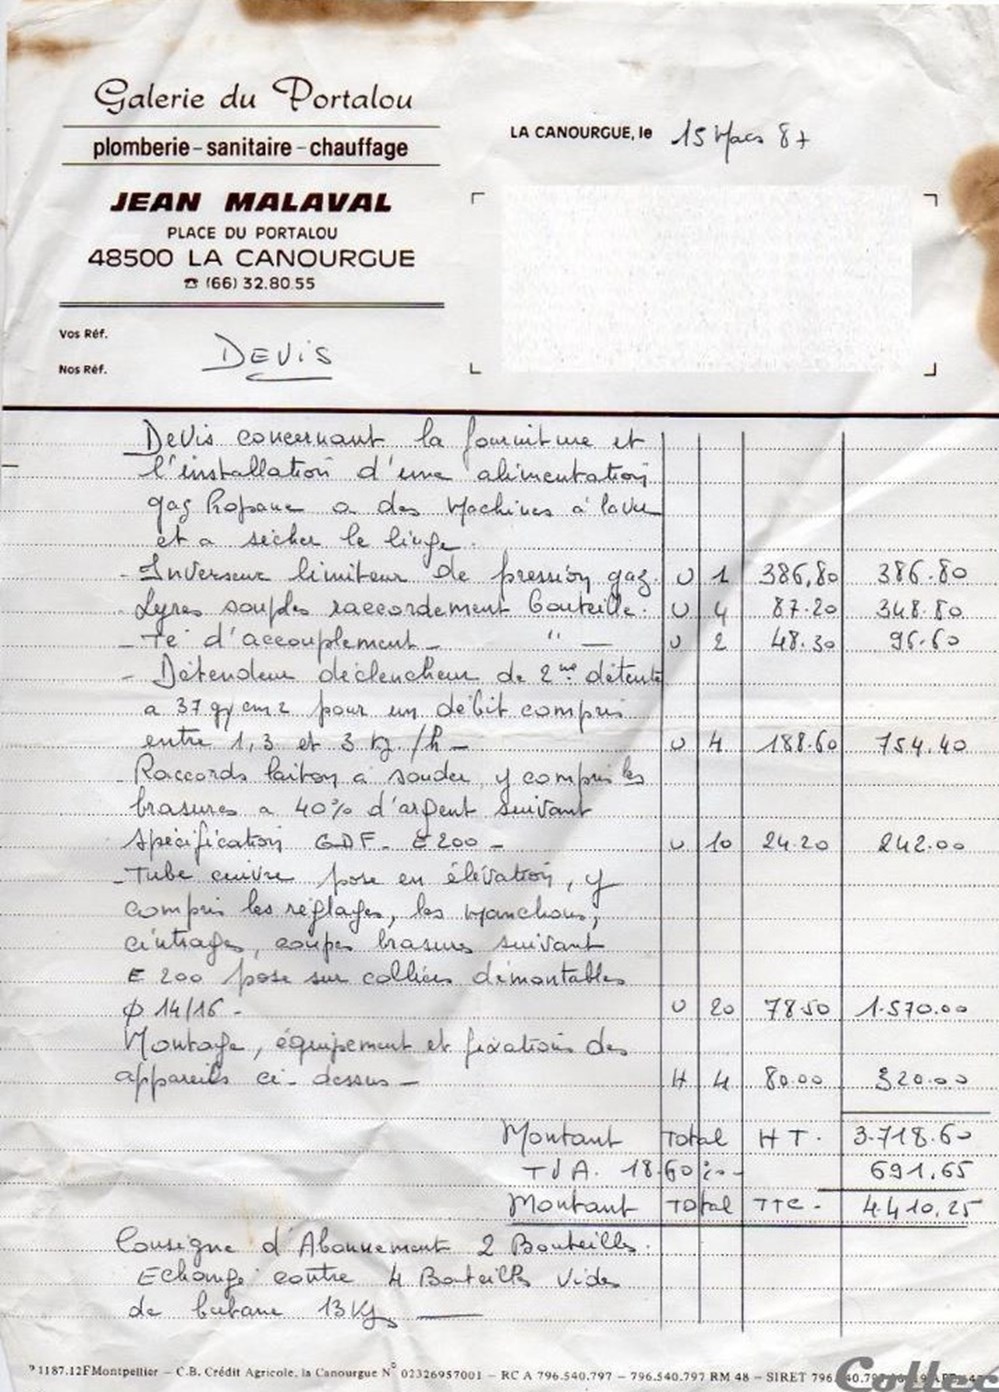 Galerie du Portalou
plomberie - sanitaire - chauffage
JEAN MALAVAL
PLACE DU PORTALOU
48500 LA CANOURGUE
☎ (66) 32.80.55
LA CANOURGUE, le 15 Mars 87
Vos Réf.
Nos Réf.
DEVIS
Devis concernant la fourniture et
l'installation d'une alimentation
gaz Propane a des Machines à laver
et a sécher le linge.
- Inverseur limiteur de pression gaz. U 1 386,80 386.80
- Lyres souples raccordement bouteille. U 4 87.20 348.80
- Té d'accouplement - " - U 2 48.30 96.60
- Détendeur déclencheur de 2me détente
a 37 g/cm2 pour un débit compris
entre 1,3 et 3 kg /h - U 4 188.60 754.40
- Raccords laiton a souder, y compris les
brasures a 40% d'argent suivant
spécification GDF - E 200 - U 10 24.20 242.00
- Tube cuivre pose en élévation, y
compris les réglages, les manchons,
cintrages, coupes brasures suivant
E 200 pose sur colliers démontables
φ 14/16 - U 20 78.50 1.570.00
Montage, équipement et fixations des
appareils ci-dessus - H 4 80.00 320.00
Montant Total HT. 3.718.60
TVA. 18.60 %.- 691,65
Montant Total TTC - 4.410,25
Consigne d'Abonnement 2 Bouteilles.
Echange contre 4 Bouteilles vides
de butane 13 Kg
1187.12F Montpellier – C.B. Crédit Agricole, la Canourgue N° 02326957001 – RC A 796.540.797 – 796.540.797 RM 48 – SIRET 796
Collec